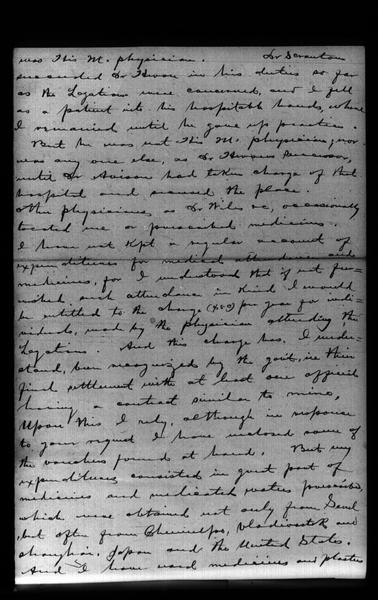 was His M. physician. Dr Scranton
succeeded Dr Heron in his duties so far
as the Legations were concerned, and I fell
as a patient into his hospitable hands, where
I remained until he gave up practice.
But he was not His M. physician, nor
was any one else, as Dr Herons successor,
until Dr Avison had taken charge of that
hospital and secured the place.
Other physicians, as Dr Wiles &c, occasionally
treated me or prescribed medicines.
I have not kept a regular account of
expenditures for medical attendance and
medicines, for I understood that if not fur-
nished, such attendance in kind I would
be entitled to the charge per year for indi-
viduals, made by the physician attending the
Legation. And this charge has, I under-
stand, been recognized by the govt. in their
final settlement with at least one official
having a contract similar to mine.
Upon this I rely, although in response
to your request I have enclosed some of
the vouchers found at hand. But my
expenditures consisted in great part of
medicines and medicated waters prescribed,
which were obtained not only from Seoul
but often from Chemulpo, Vladivostok and
Shanghai, Japan and the United States.
And I have used medicines and plasters